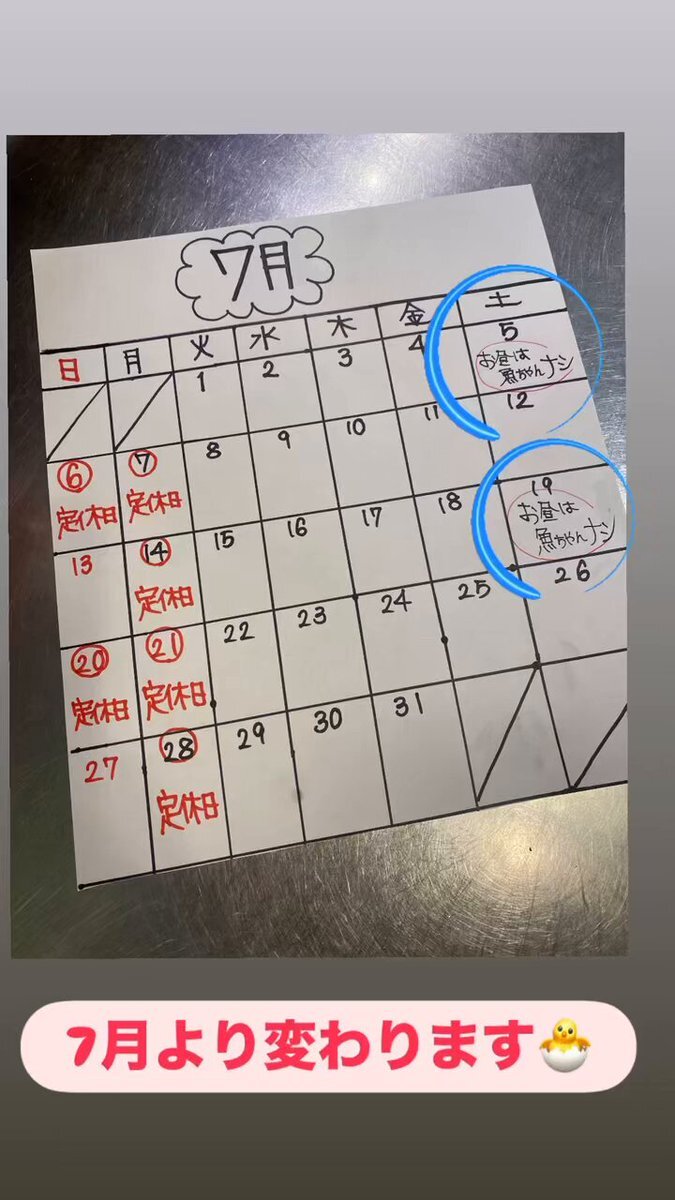 7月
日 月 火 水 木 金 土
1 2 3 4 5
お昼は
魚ちゃんナシ
6 7 8 9 10 11 12
定休日 定休日
13 14 15 16 17 18 19
定休日
お昼は
魚ちゃんナシ
20 21 22 23 24 25 26
定休日 定休日
27 28 29 30 31
定休日
7月より変わります🐣